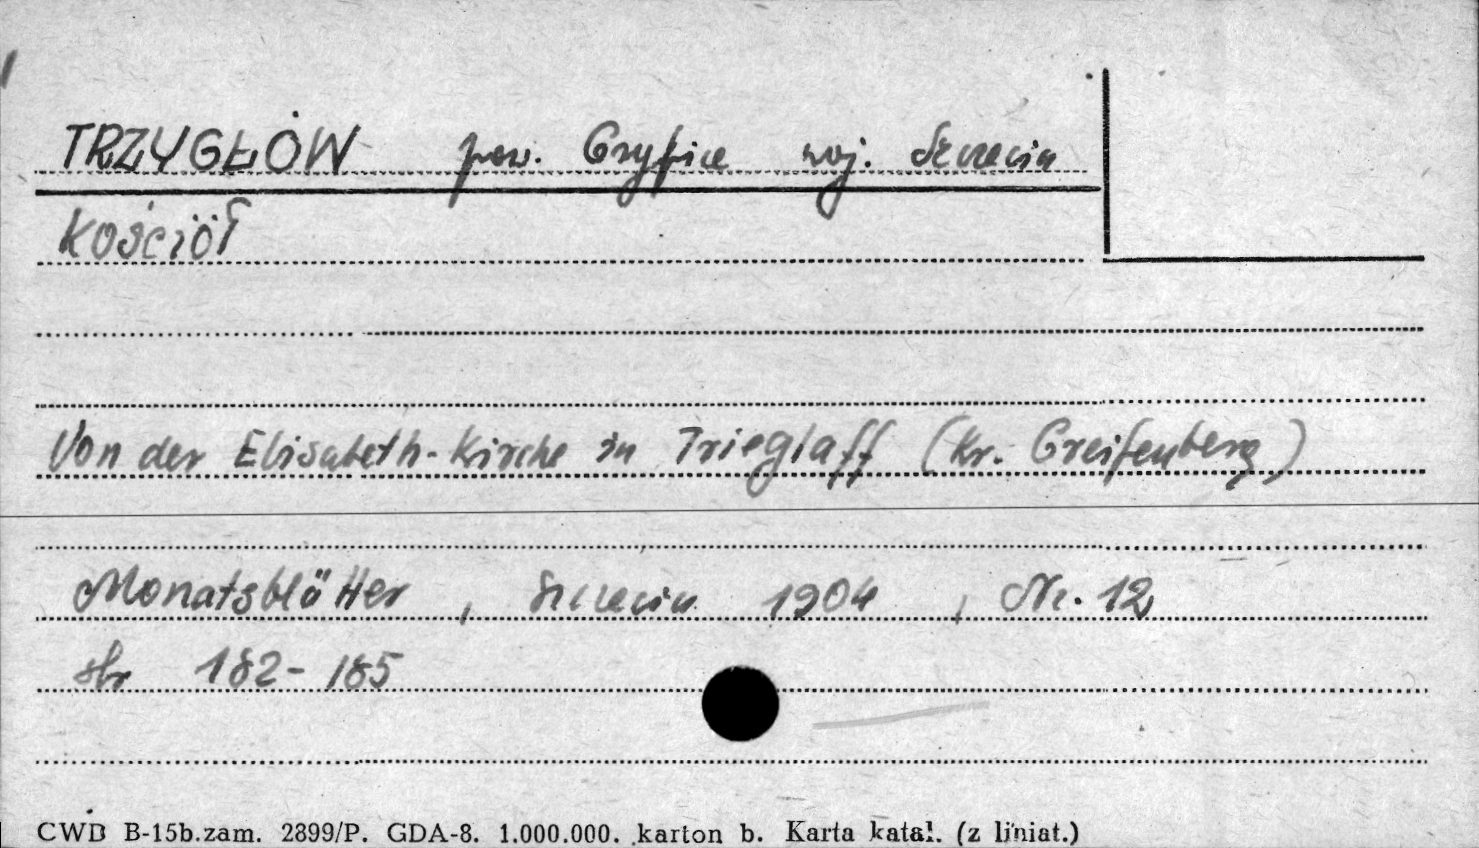 TRZYGŁÓW pow. Gryfice woj. Szczecin
Kościół
Von der Elisabeth-Kirche in Trieglaff (Kr. Greifenberg)
Monatsblätter, Szczecin 1904, Nr. 12
str 182-185
CWD B-15b.zam. 2899/P. GDA-8. 1.000.000. karton b. Karta katal. (z liniat.)